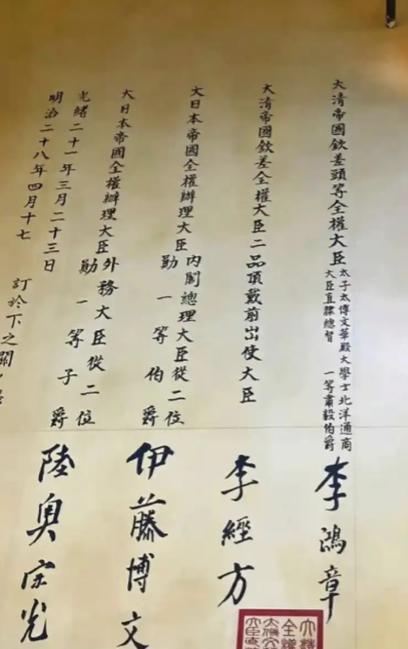 大清帝國欽差頭等全權大臣
太子太傅文華殿大學士北洋通商
大臣直隸總督 一等肅毅伯爵
李鴻章
大清帝國欽差全權大臣二品頂戴前出使大臣
李經方
大日本帝國全權辦理大臣
內閣總理大臣從二位
勳一等伯爵
伊藤博文
大日本帝國全權辦理大臣
外務大臣從二位
勳一等子爵
陸奧宗光
光緒二十一年三月二十三日
明治二十八年四月十七
訂於下之關